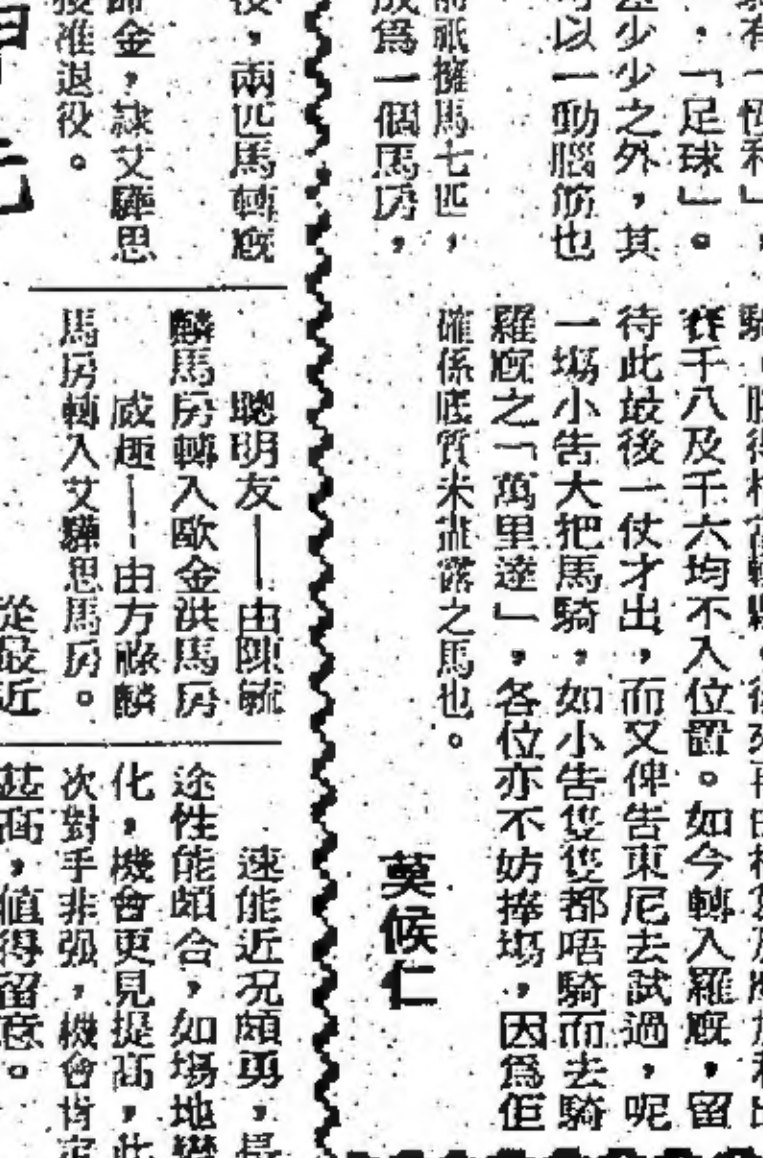 」，
，「足球」。
少少之外，其
以一動腦筋也
祇擁馬七匹，
爲一個馬房，
賽千八及千六均不入位置。如今轉入羅廐，留
待此最後一仗才出，而又俾告東尼去試過，呢
一塲小告大把馬騎，如小告隻隻都唔騎而去騎
羅廐之「萬里達」，各位亦不妨捧塲，因爲佢
確係底質未盡露之馬也。
莫候仁
，兩匹馬轉廐
金，隸艾驊思
准退役。
聰明友——由陳毓
麟馬房轉入歐金洪馬房
威極——由方祿麟
馬房轉入艾驊思馬房。
從最近
速能近况頗勇，
途性能頗合，如塲地
化，機會更見提高，此
次對手非弱，機會肯定
甚高，值得留意。